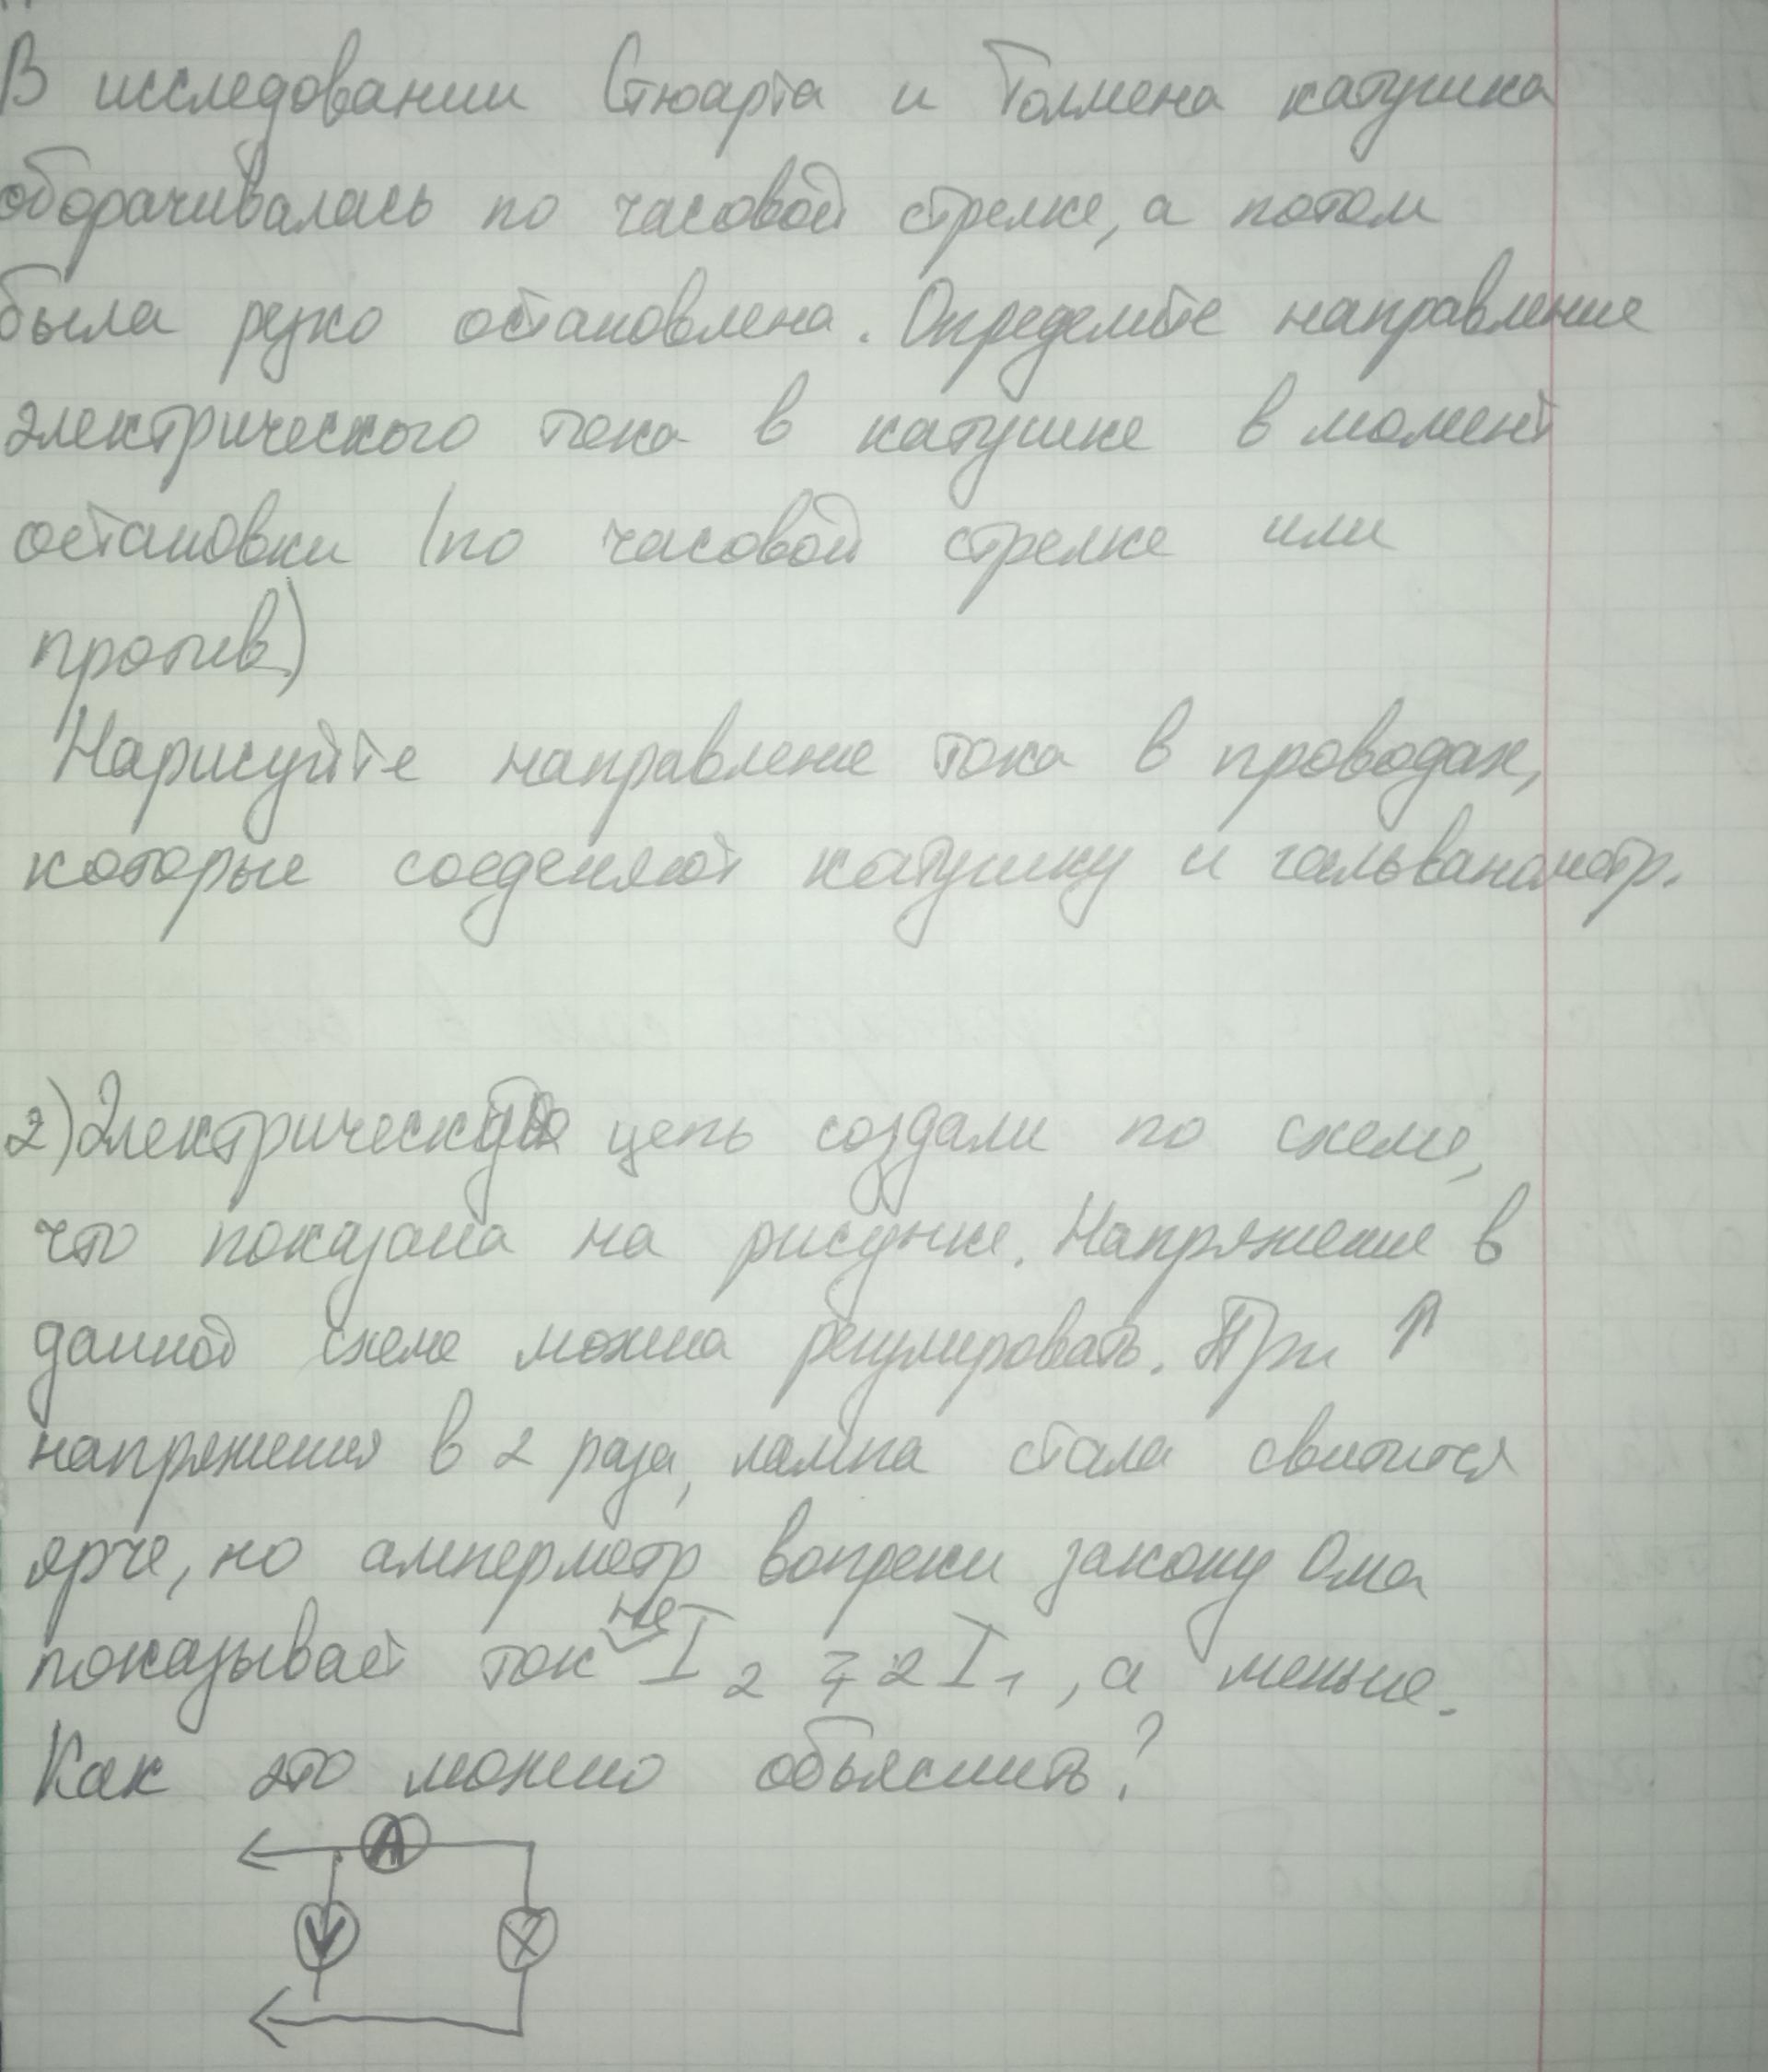 В исследовании Стюарта и Толмена катушка
оборачивалась по часовой стрелке, а потом
была резко остановлена. Определите направление
электрического тока в катушке в момент
остановки (по часовой стрелке или
против)
Нарисуйте направление тока в проводах,
которые соеденяют катушку и гальванометр.
2) Электрическую цепь создали по схеме,
что показана на рисунке. Напряжение в
данной схеме можна регулировать. При ↑
напряжения в 2 раза, лампа стала свитится
ярче, но амперметр вопреки закону Ома
показывает ток не I₂ = 2I₁, а меньше.
Как это можно объяснить?
A
V